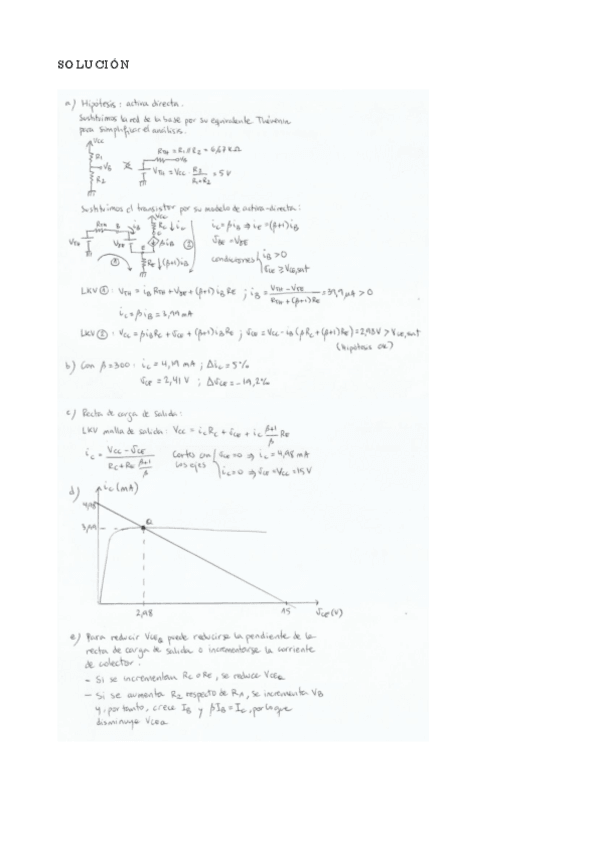 SOLUCIÓN
a) Hipótesis: activa directa.
Sustituimos la red de la base por su equivalente Thévenin
para simplificar el análisis.
VCC
R1
VB
R2
RTH = R1//R2 = 6,67 KΩ
VB
VTH = VCC R2/(R1+R2) = 5 V
Sustituimos el transistor por su modelo de activa-directa:
RTH B iB VCC RC ↓ iC
VTH VBE C βiB ②
E RE ↓(β+1)iB ①
iC = βiB ⇒ iE = (β+1)iB
vBE = VBE
condiciones { iB > 0
vCE ≥ VCE,sat
LKV ①: VTH = iB RTH + VBE + (β+1) iB RE ; iB = (VTH - VBE)/(RTH + (β+1)RE) = 39,9 μA > 0
iC = βiB = 3,99 mA
LKV ②: VCC = βiB RC + vCE + (β+1)iB RE ; vCE = VCC - iB (βRC + (β+1)RE) = 2,98 V > VCE,sat
(hipótesis OK)
b) Con β=300: iC = 4,19 mA ; ΔiC = 5%
vCE = 2,41 V ; ΔvCE = -19,2%
c) Recta de carga de salida:
LKV malla de salida: VCC = iC RC + vCE + iC (β+1)/β RE
iC = (VCC - vCE)/(RC + RE (β+1)/β)
Cortes con los ejes { vCE = 0 ⇒ iC = 4,98 mA
iC = 0 ⇒ vCE = VCC = 15 V
d) iC (mA)
4,98
3,99
Q
2,98
15
vCE (V)
e) Para reducir VCEQ puede reducirse la pendiente de la
recta de carga de salida o incrementarse la corriente
de colector.
- Si se incrementan RC o RE, se reduce VCEQ
- Si se aumenta R2 respecto de R1, se incrementa VB
y, por tanto, crece IB y βIB = IC, por lo que
disminuye VCEQ